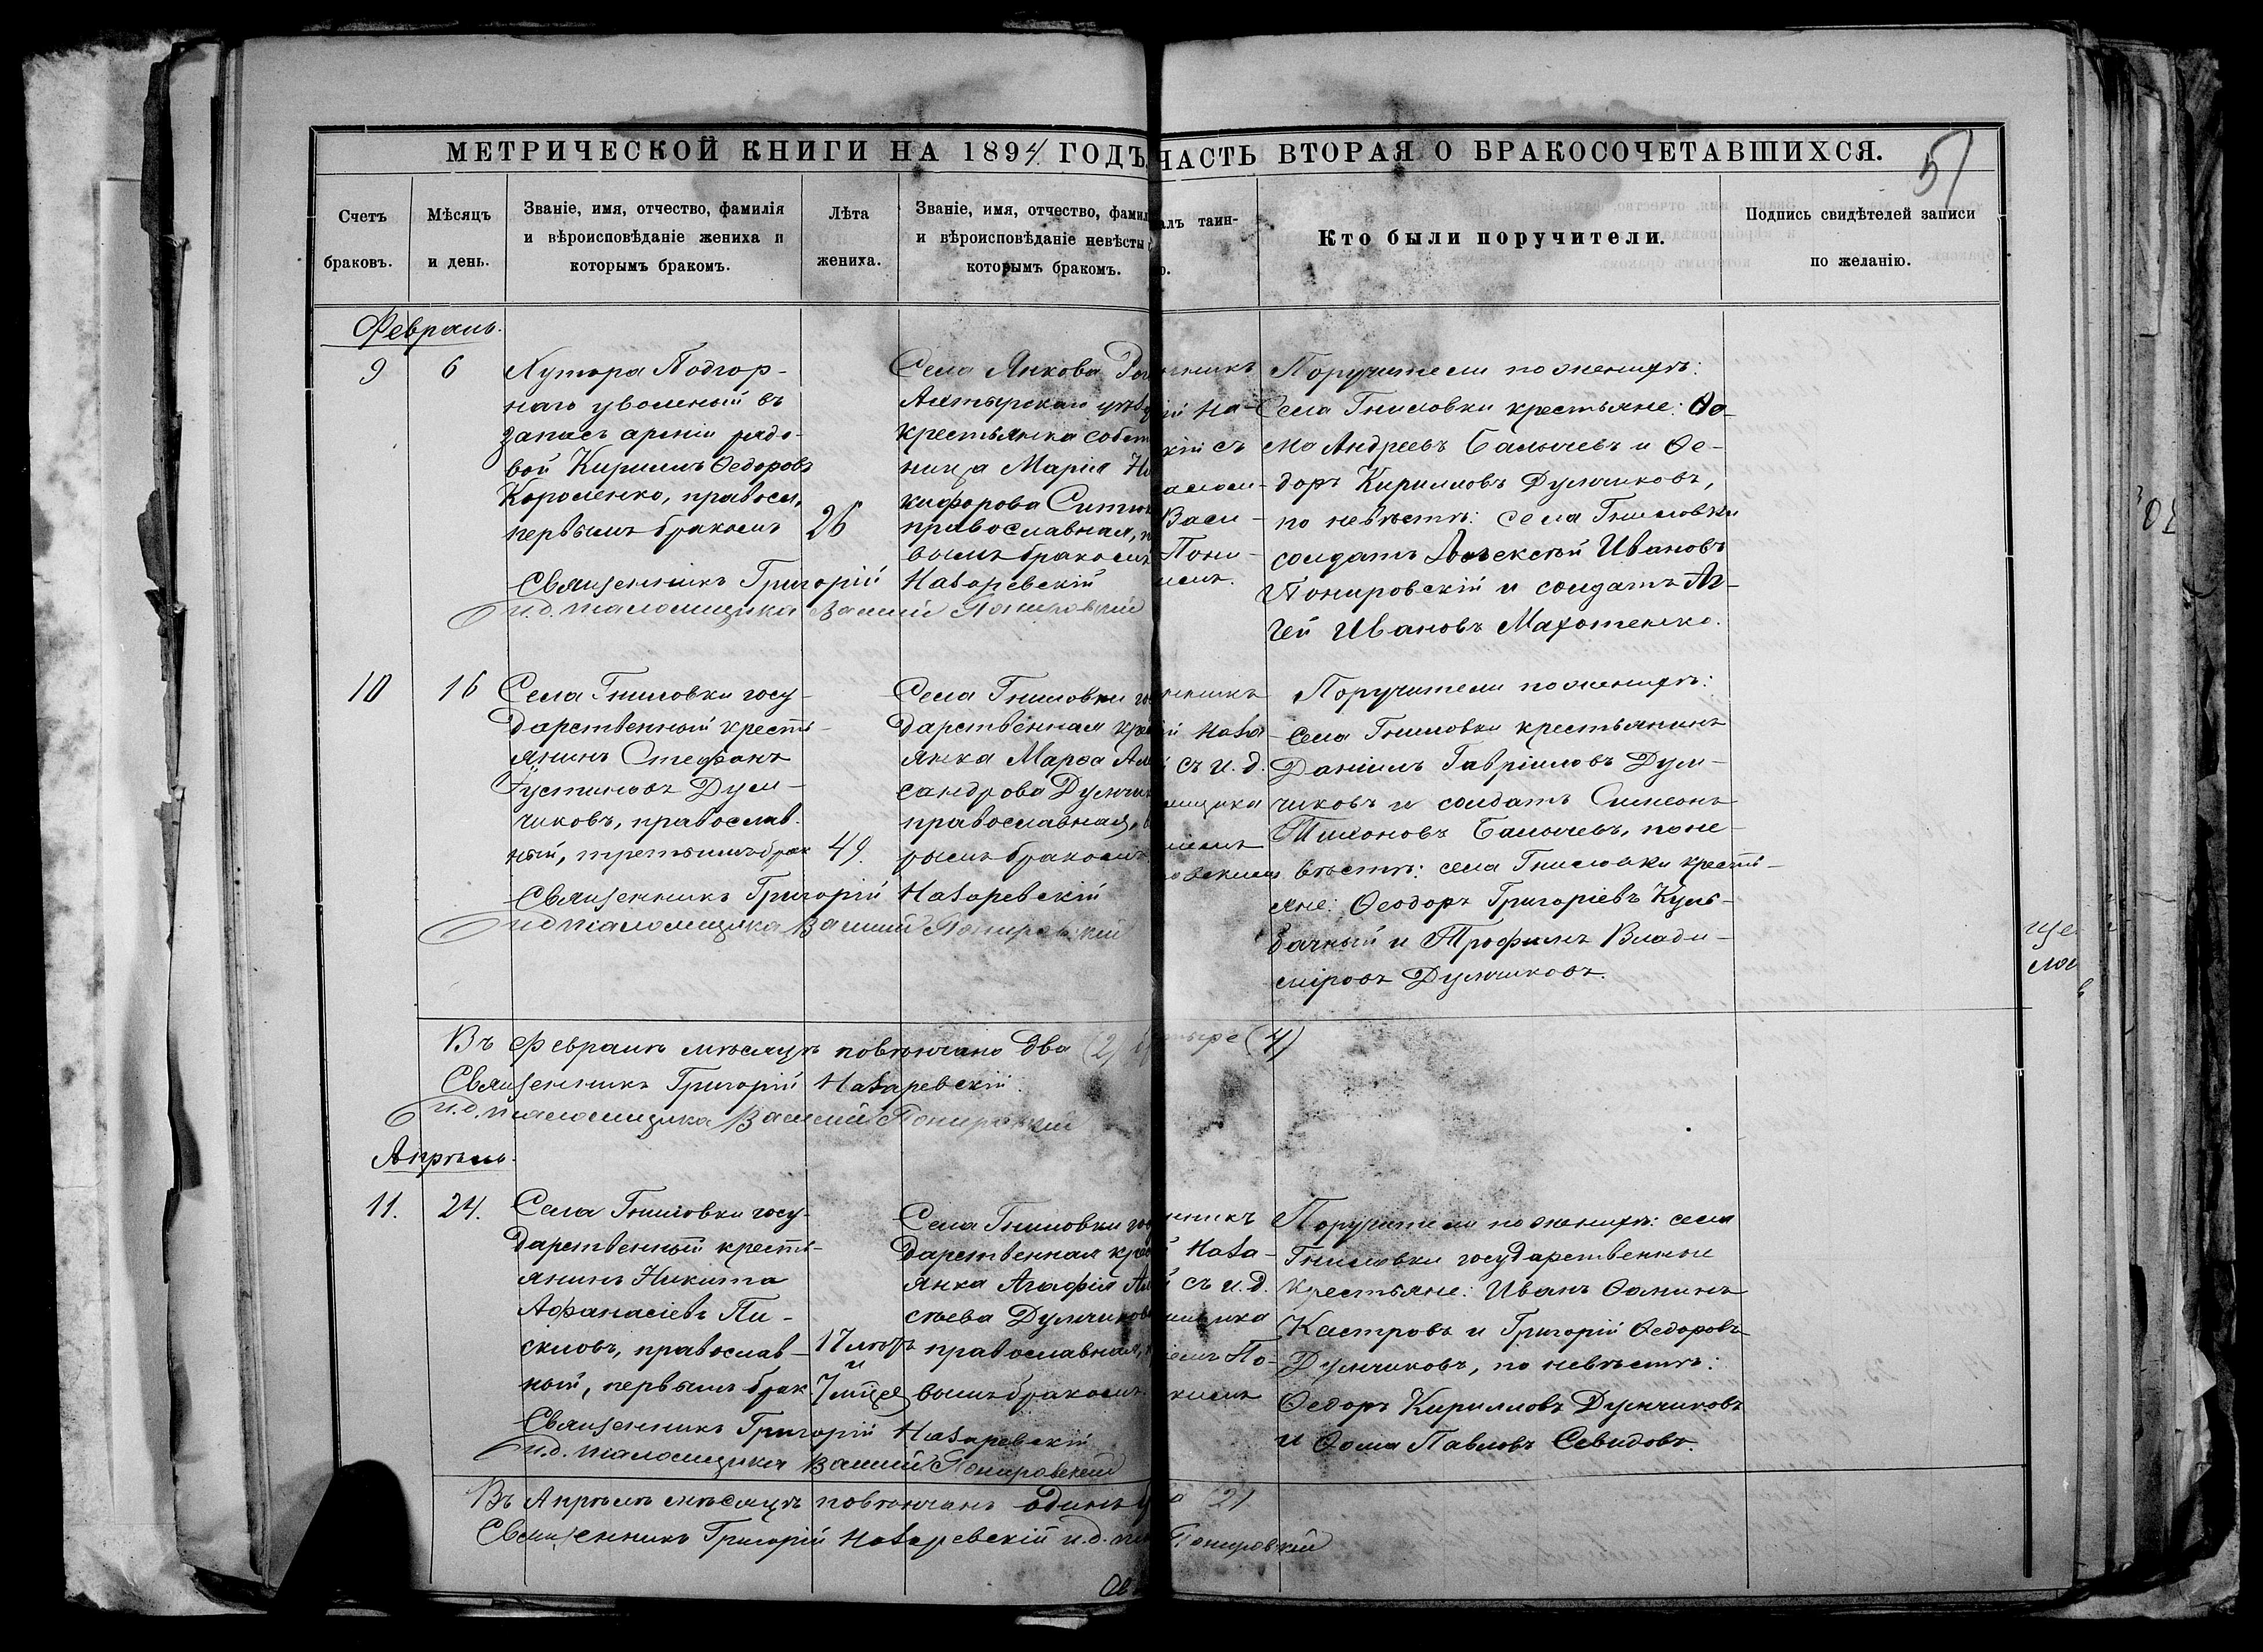 МЕТРИЧЕСКОЙ КНИГИ НА 1894 ГОДЪ
ЧАСТЬ ВТОРАЯ О БРАКОСОЧЕТАВШИХСЯ.
51
Счетъ
браковъ.
Мѣсяцъ
и день.
Званіе, имя, отчество, фамилія
и вѣроисповѣданіе жениха и
которымъ бракомъ.
Лѣта
жениха.
Званіе, имя, отчество, фамил
и вѣроисповѣданіе невѣсты
которымъ бракомъ.
алъ таин-
о.
Кто были поручители.
Подпись свидѣтелей записи
по желанію.
Февраль.
9
6
Хутора Подгор-
наго уволеный въ
запасъ арміи рядо-
вой Кириллъ Ѳедоровъ
Короленко, правосл,
первымъ бракомъ
26
Села Янкова
Ахтырскаго уѣз
крестьянка собст
ница Марія Ни
кифорова
православная,
вымъ бракомъ
нникъ
й На-
кій съ
Васи-
Пони-
Поручители по женихѣ:
Села Гниловки крестьяне: Ѳо-
ма Андреевъ Балычевъ и Ѳе-
доръ Кирилловъ Думчиковъ,
по невѣстѣ: села Гниловки
солдатъ Алексѣй Ивановъ
Понировскій и солдатъ Аг-
гей Ивановъ Махотенко.
Священникъ Григорій Назаревскій
и.д. псаломщика Василій Понировскій
10
16
Села Гниловки госу-
дарственный кресть-
янинъ Стефанъ
Іустиновъ Дум-
чиковъ, православ.
ный, третьимъ брак
49.
Села Гниловки го
дарственная кре
янка Марѳа Але
сандрова Думчик
православная, в
рымъ бракомъ
нникъ
й Наза-
съ и. д.
мщика
ліемъ
овскимъ
Поручители по женихѣ:
Села Гниловки крестьянинъ
Даніилъ Гавріиловъ Дум-
чиковъ и солдатъ Симеонъ
Тихоновъ Балычевъ, по не-
вѣстѣ: села Гниловки кресть-
яне: Ѳеодоръ Григоріевъ Куль-
бачный и Трофимъ Влади-
міровъ Думчиковъ.
Священникъ Григорій Назаревскій
и д псаломщика Василій Понировскій
Въ Февралѣ мѣсяцѣ повѣнчано два (2)
тыре (4)
Священникъ Григорій Назаревскій.
и.д. псаломщика Василій Понировскій
Апрѣль.
11.
24.
Села Гниловки госу-
дарственный кресть-
янинъ Никита
Афанасіевъ Пи-
скловъ, православ-
ный, первымъ брак
17 лѣтъ
и
7 мѣсяц
Села Гниловки го
дарственная кре
янка Агафія Але
сѣева Думчикова
православная,
вымъ бракомъ.
нникъ
Наза-
й съ и. д.
мщика
ліемъ По-
скимъ
Поручители по женихѣ: села
Гниловки государственные
крестьяне: Иванъ Ѳоминъ
Кастровъ и Григорій Ѳедоровъ
Думчиковъ, по невѣстѣ:
Ѳедоръ Кирилловъ Думчиковъ
и Ѳома Павловъ Севидовъ.
Священникъ Григорій Назаревскій
и.д. псаломщика Василій Понировскій
Въ Апрѣлѣ мѣсяцѣ повѣнчанъ одинъ б
а (2)
Священникъ Григорій Назаревскій и.д. пса
Понировскій